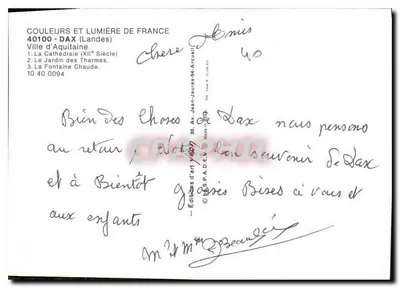 COULEURS ET LUMIÈRE DE FRANCE
40100 - DAX (Landes)
Ville d'Aquitaine
1. La Cathédrale (XIIe Siècle)
2. Le Jardin des Thermes.
3. La Fontaine Chaude.
10 40 0094
Chere Amis
40
Bien des Choses de Dax nous pensons
au retour, bon souvenir de Dax
et à Bientôt grosses Bises à vous et
aux enfants
Mr et Mme
Editions d'art 30, Av. Jean-Jaurès-94-Arcueil